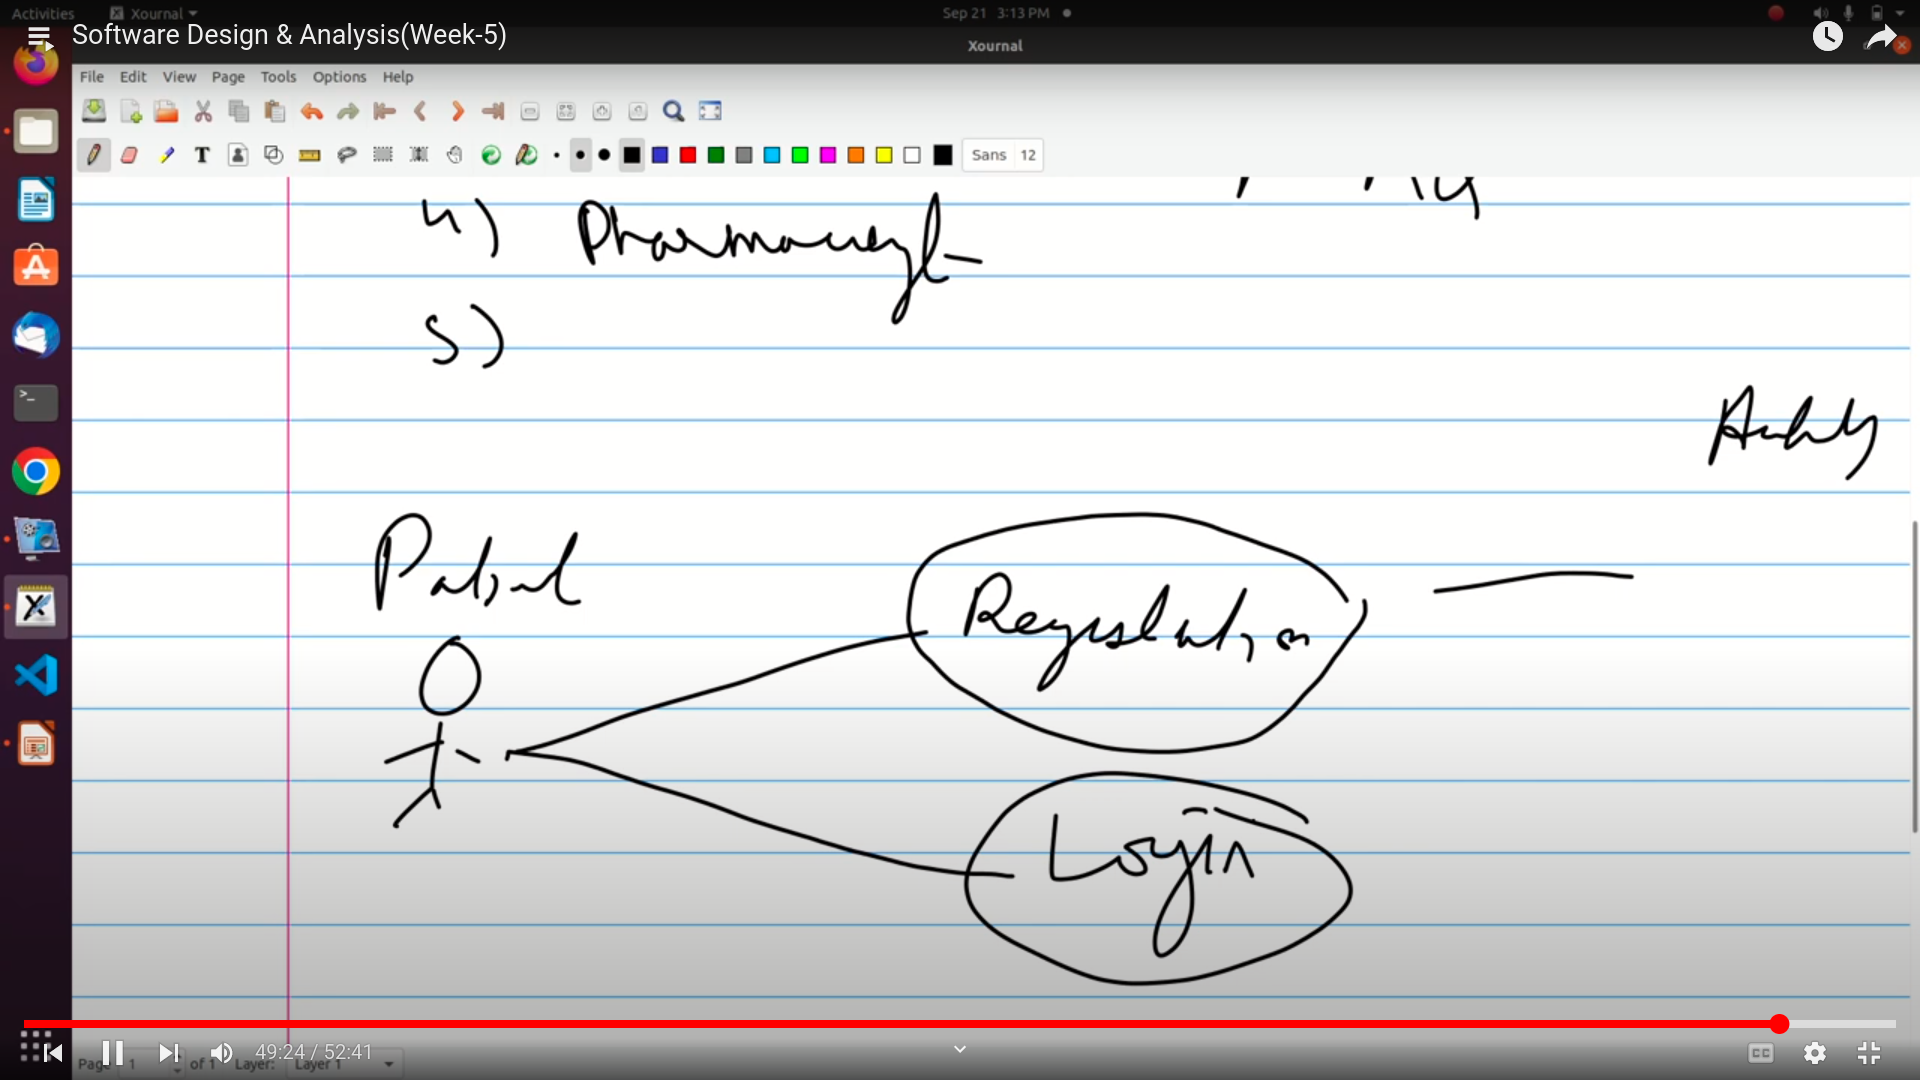 Activities Xournal Sep 21 3:13 PM
Software Design & Analysis(Week-5)
Xournal
File Edit View Page Tools Options Help
T Sans 12
4) Pharmacyt-
5)
Patient
Registration
Login
49:24 / 52:41 CC
Page 1 of 1 Layer: Layer 1